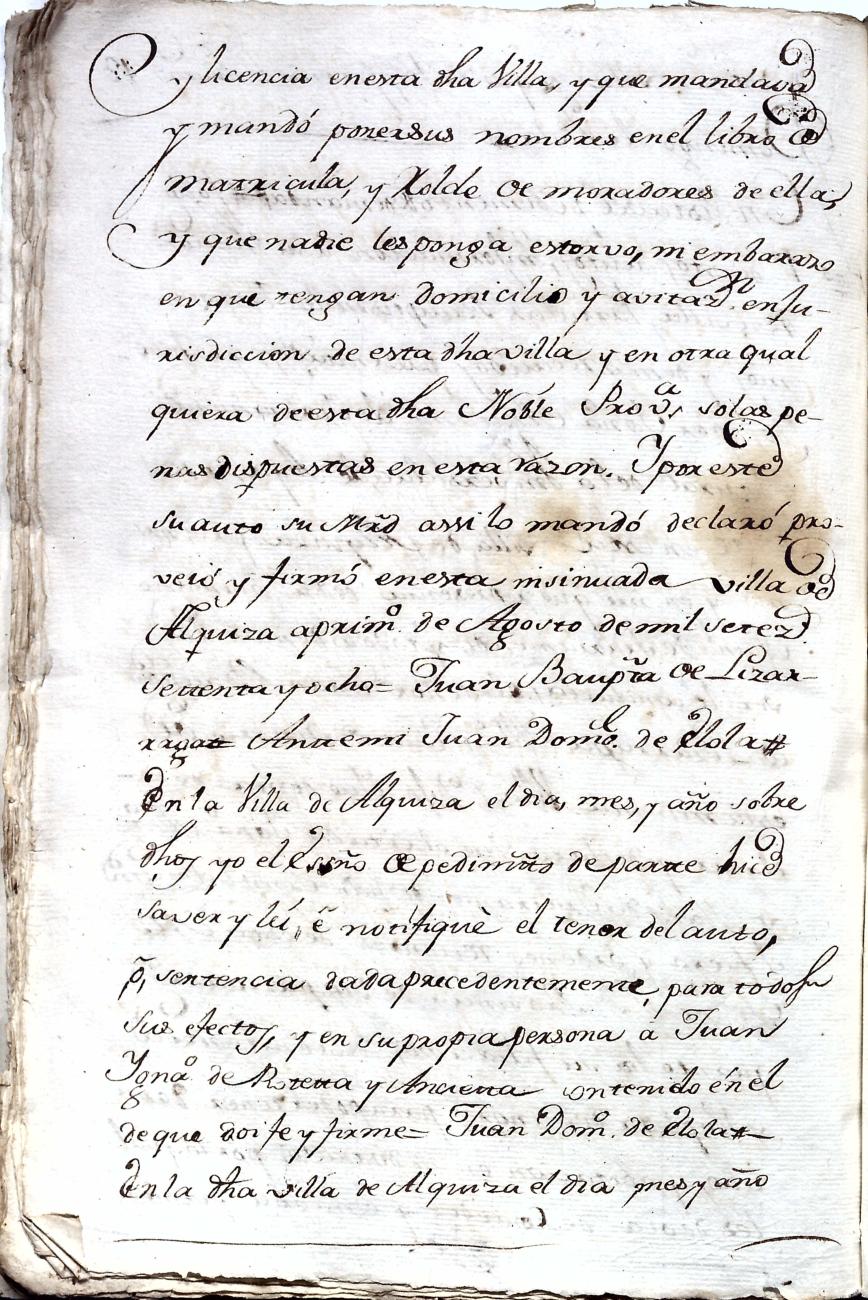 y licencia en esta dha Villa, y que mandava
y mandó poner sus nombres en el libro de
matricula, y Rolde de moradores de ella,
y que nadie les ponga estorvo, ni embarazo
en que tengan domicilio y avitaz.n en ju-
risdiccion de esta dha villa y en otra qual
quiera de esta dha Noble Prov.a, solas pe-
nas dispuestas en esta razon. Y por este
su auto su Mrd assi lo mandó declaró pro-
veió y firmó en esta insinuada villa de
Alquiza a prim.o de Agosto de mil setez.s
settenta y ocho = Juan Baup.ta de Lizar-
raga = Ante mi Juan Dom.o de Elola #
En la Villa de Alquiza el dia, mes, y año sobre
dhos yo el Essño de pedimto de parte hice
saver y leí, é notifiquè el tenor del auto,
õ, sentencia dada precedentemente, para todos
sus efectos, y en su propia persona à Juan
Ygn.o de Rotetta y Ancietta contenido én él
de que doi fe y firme = Juan Dom.o de Elola
En la dha villa de Alquiza el dia mes y año